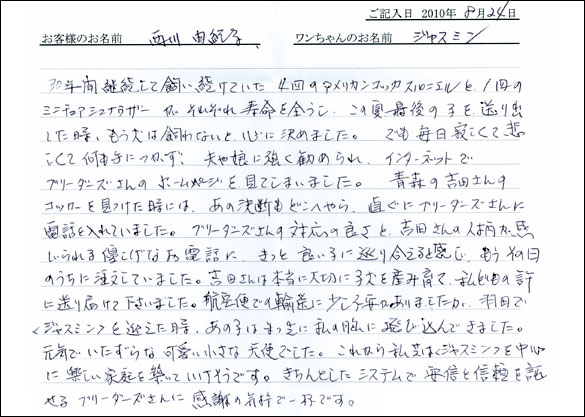 ご記入日 2010年 8月24日
お客様のお名前 西川 由紀子 ワンちゃんのお名前 ジャスミン
30年間継続して飼い続けていた 4回のアメリカンコッカスパニエルと、1回の
ミニチュアシュナウザー が、それぞれ寿命を全うし、この夏最後の子を送り出
した時、もう犬は飼わないと、心に決めました。 でも毎日寂しくて悲
しくて何も手につかず、夫や娘に強く勧められ、インターネットで
ブリーダーズさんのホームページを見てしまいました。 青森の吉田さんの
コッカーを見つけた時には、あの決断もどこへやら、直ぐにブリーダーズさんに
電話を入れていました。ブリーダーズさんの対応の良さと、吉田さんの人柄が感
じられる優しげなお電話に、きっと良い子に巡り合えると感じ、もうその日
のうちに注文していました。吉田さんは本当に大切に子犬を産み育て、私どもの許
に送り届けて下さいました。航空便での輸送に少し不安がありましたが、羽田で
〈ジャスミン〉を迎えた時、あの子はまっ先に私の胸に飛び込んできました。
元気でいたずらな可愛い小さな天使でした。これから私達は〈ジャスミン〉を中心
に楽しい家庭を築いていけそうです。きちんとしたシステムで安信と信頼を託
せるブリーダーズさんに感謝の気持で一杯です。